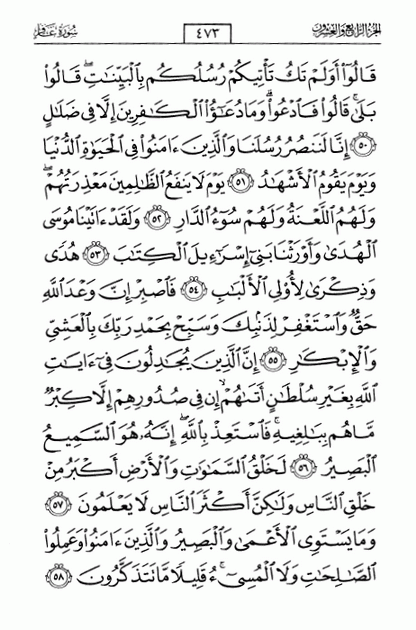 الجزء الرابع والعشرون ٤٧٣ سورة غافر
قَالُوٓا۟ أَوَلَمْ تَكُ تَأْتِيكُمْ رُسُلُكُم بِٱلْبَيِّنَٰتِ ۖ قَالُوا۟
بَلَىٰ ۚ قَالُوا۟ فَٱدْعُوا۟ ۗ وَمَا دُعَٰٓؤُا۟ ٱلْكَٰفِرِينَ إِلَّا فِى ضَلَٰلٍ
٥٠ إِنَّا لَنَنصُرُ رُسُلَنَا وَٱلَّذِينَ ءَامَنُوا۟ فِى ٱلْحَيَوٰةِ ٱلدُّنْيَا
وَيَوْمَ يَقُومُ ٱلْأَشْهَٰدُ ٥١ يَوْمَ لَا يَنفَعُ ٱلظَّٰلِمِينَ مَعْذِرَتُهُمْ ۖ
وَلَهُمُ ٱللَّعْنَةُ وَلَهُمْ سُوٓءُ ٱلدَّارِ ٥٢ وَلَقَدْ ءَاتَيْنَا مُوسَى
ٱلْهُدَىٰ وَأَوْرَثْنَا بَنِىٓ إِسْرَٰٓءِيلَ ٱلْكِتَٰبَ ٥٣ هُدًى
وَذِكْرَىٰ لِأُو۟لِى ٱلْأَلْبَٰبِ ٥٤ فَٱصْبِرْ إِنَّ وَعْدَ ٱللَّهِ
حَقٌّ وَٱسْتَغْفِرْ لِذَنۢبِكَ وَسَبِّحْ بِحَمْدِ رَبِّكَ بِٱلْعَشِىِّ
وَٱلْإِبْكَٰرِ ٥٥ إِنَّ ٱلَّذِينَ يُجَٰدِلُونَ فِىٓ ءَايَٰتِ
ٱللَّهِ بِغَيْرِ سُلْطَٰنٍ أَتَىٰهُمْ ۙ إِن فِى صُدُورِهِمْ إِلَّا كِبْرٌ
مَّا هُم بِبَٰلِغِيهِ ۚ فَٱسْتَعِذْ بِٱللَّهِ ۖ إِنَّهُۥ هُوَ ٱلسَّمِيعُ
ٱلْبَصِيرُ ٥٦ لَخَلْقُ ٱلسَّمَٰوَٰتِ وَٱلْأَرْضِ أَكْبَرُ مِنْ
خَلْقِ ٱلنَّاسِ وَلَٰكِنَّ أَكْثَرَ ٱلنَّاسِ لَا يَعْلَمُونَ ٥٧
وَمَا يَسْتَوِى ٱلْأَعْمَىٰ وَٱلْبَصِيرُ وَٱلَّذِينَ ءَامَنُوا۟ وَعَمِلُوا۟
ٱلصَّٰلِحَٰتِ وَلَا ٱلْمُسِىٓءُ ۚ قَلِيلًا مَّا تَتَذَكَّرُونَ ٥٨